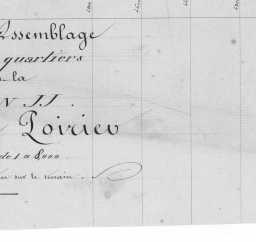 Assemblage
quartiers
la
N II.
Poirier
de 1 à 5000
sur le terrain